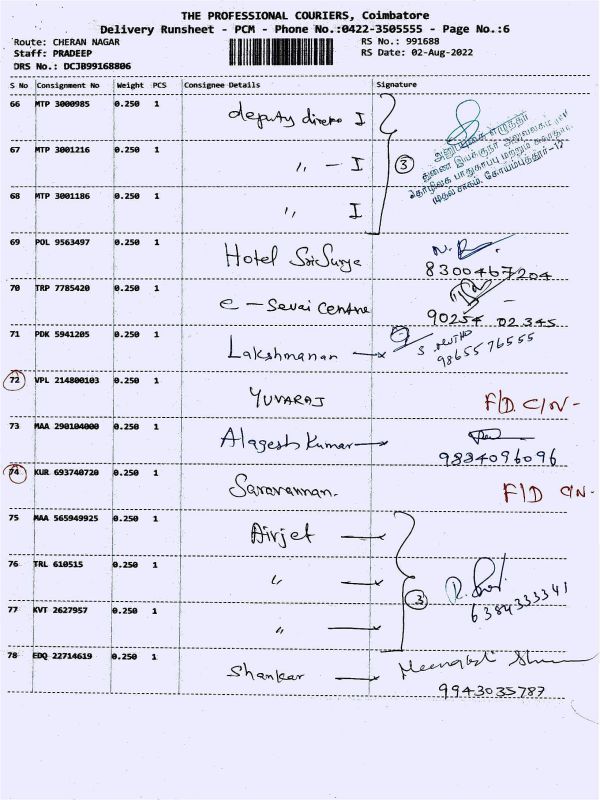 THE PROFESSIONAL COURIERS, Coimbatore
Delivery Runsheet - PCM - Phone No.:0422-3505555 - Page No.:6
Route: CHERAN NAGAR
RS No.: 991688
Staff: PRADEEP
RS Date: 02-Aug-2022
DRS No.: DCJB99168806
S No Consignment No Weight PCS Consignee Details Signature
66 MTP 3000985 0.250 1 deputy I
67 MTP 3001216 0.250 1 〃 - I
3
68 MTP 3001186 0.250 1 〃 I
துணை இயக்குநர் அலுவலகம்
தொழிலக பாதுகாப்பு மற்றும் சுகாதார
கோயம்புத்தூர்-12
69 POL 9563497 0.250 1 Hotel SriSurya
8300467204
70 TRP 7785420 0.250 1 e - Sevai Centre
90254 02345
71 PDK 5941205 0.250 1 Lakshmanan
9865576555
72 VPL 214800103 0.250 1 YUVARAJ F/D C/N -
73 MAA 290104000 0.250 1 Alagesh Kumar
9884096096
74 KUR 693740720 0.250 1 Saravanan. F/D C/N -
75 MAA 565949925 0.250 1 Airjet
76 TRL 610515 0.250 1 〃
3
6384333341
77 KVT 2627957 0.250 1 〃
78 EDQ 22714619 0.250 1 Shankar
9943035787